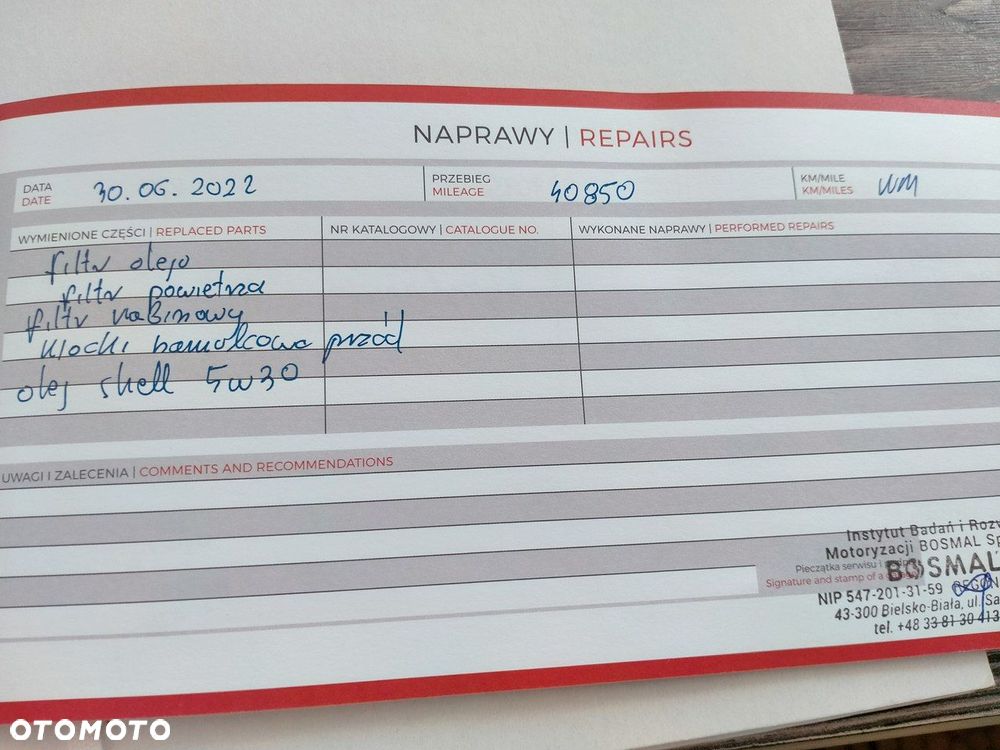 NAPRAWY | REPAIRS
DATA
DATE
30.06.2022
PRZEBIEG
MILEAGE
40850
KM/MILE
KM/MILES
WYMIENIONE CZĘŚCI | REPLACED PARTS
NR KATALOGOWY | CATALOGUE NO.
WYKONANE NAPRAWY | PERFORMED REPAIRS
filtr oleju
filtr powietrza
filtr kabinowy
klocki hamulcowe przód
olej shell 5w30
UWAGI I ZALECENIA | COMMENTS AND RECOMMENDATIONS
Instytut Badań i Rozw
Motoryzacji BOSMAL Sp
Pieczątka serwisu i
BOSMAL
Signature and stamp of a
NIP 547-201-31-59
43-300 Bielsko-Biała, ul. Sa
tel. +48 33 81 30 413
OTOMOTO